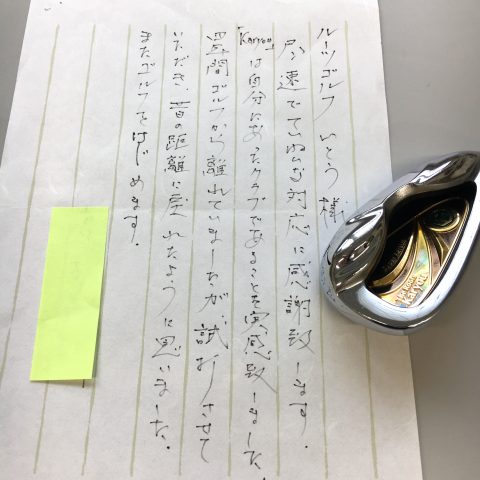 ルーツゴルフ いとう様
早速でていねいな対応に感謝致します。
「Karyou」は自分にあったクラブであることを実感致しました。
間ゴルフから離れていましたが、試打させて
いただき、昔の距離に戻れたように思いました。
またゴルフをはじめます。
Karyou